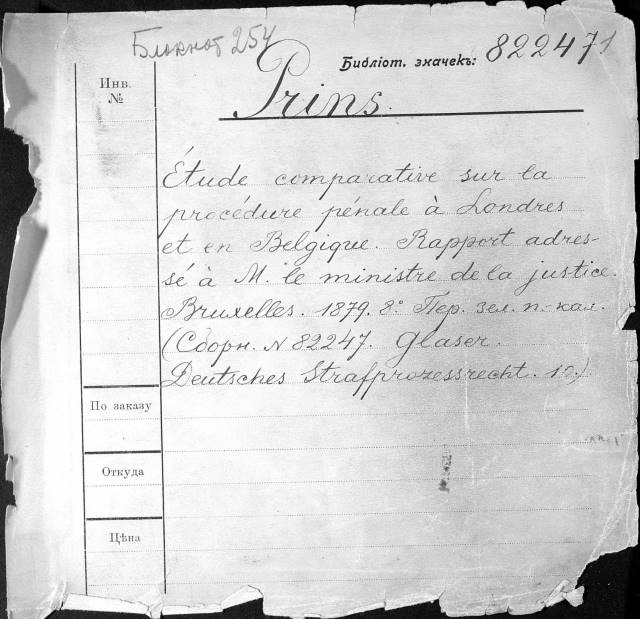 Блокнот 254
Библіот. значекъ: 822471
Инв.
№
Prins.
Étude comparative sur la
procédure pénale à Londres
et en Belgique. Rapport adres-
sé à M. le ministre de la justice.
Bruxelles. 1879. 8.° Пер. зел. п. кал.
(Сборн. N 82247. Glaser.
Deutsches Strafprozessrecht.
По заказу
Откуда
Цѣна